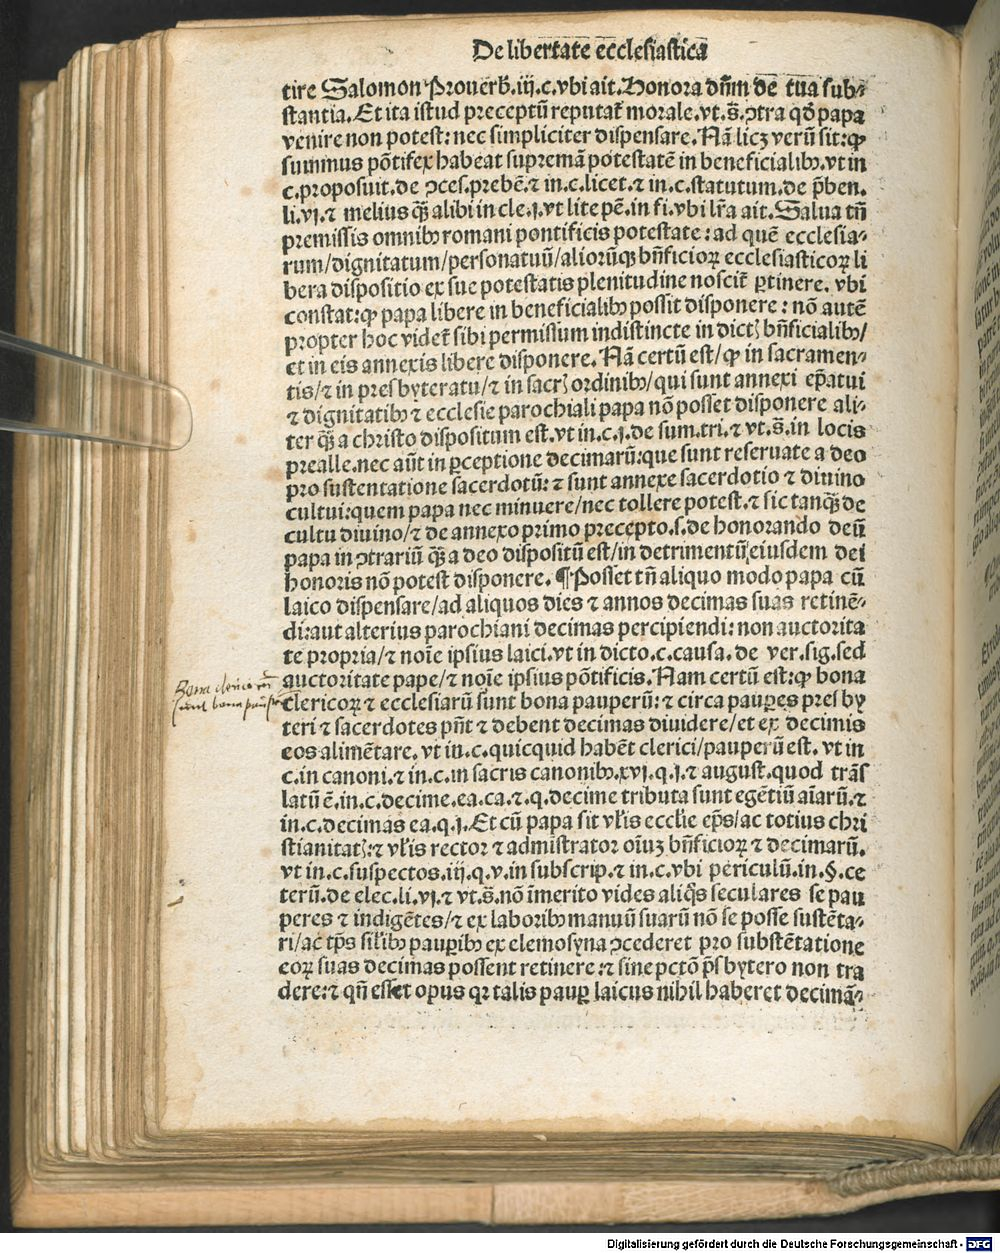 De libertate ecclesiastica
tire Salomon Prouerb̄. iij. c. vbi ait. Honora dn̄m de tua sub⸗
stantia. Et ita istud preceptū reputat᷑ morale. vt. s̄. ꝯtra qd̄ papa
venire non potest: nec simpliciter dispensare. Nā licꝫ verū sit: ꝙ
summus pōtifex habeat supremā potestatē in beneficialibꝰ. vt in
c. proposuit. de ꝯces. prebē. ⁊ in. c. licet. ⁊ in. c. statutum. de p̄ben.
li. vj. ⁊ melius qӡ̄ alibi in cle. j. vt lite pē. in fi. vbi lr̄a ait. Salua tn̄
premissis omnibꝰ romani pontificis potestate: ad quē ecclesia⸗
rum/dignitatum/personatuū/aliorūqꝫ bn̄ficioꝝ ecclesiasticoꝝ li
bera dispositio ex sue potestatis plenitudine noscit᷑ ꝑtinere. vbi
constat: ꝙ papa libere in beneficialibꝰ possit disponere: nō autē
propter hoc videt᷑ sibi permissum indistincte in dictꝭ bn̄ficialibꝰ/
et in eis annexis libere disponere. Nā certū est/ꝙ in sacramen⸗
tis/⁊ in presbyteratu/⁊ in sacrꝭ ordinibꝰ/qui sunt annexi ep̄atui
⁊ dignitatibꝰ ⁊ ecclesie parochiali papa nō posset disponere ali⸗
ter qӡ̄ a christo dispositum est. vt in. c. j. de sum. tri. ⁊ vt. s̄. in locis
prealle. nec aūt in ꝑceptione decimarū: que sunt reseruate a deo
pro sustentatione sacerdotū: ⁊ sunt annexe sacerdotio ⁊ diuino
cultui: quem papa nec minuere/nec tollere potest. ⁊ sic tanqӡ̄ de
cultu diuino/⁊ de annexo primo precepto. s. de honorando deū
papa in ꝯtrariū qӡ̄ a deo dispositū est/in detrimentū eiusdem dei
honoris nō potest disponere. ¶ Posset tn̄ aliquo modo papa cū
laico dispensare/ad aliquos dies ⁊ annos decimas suas retinē⸗
di: aut alterius parochiani decimas percipiendi: non auctorita
te propria/⁊ noīe ipsius laici. vt in dicto. c. causa. de ver. sig. sed
auctoritate pape/⁊ noīe ipsius pōtificis. Nam certū est: ꝙ bona
clericoꝝ ⁊ ecclesiarū sunt bona pauperū: ⁊ circa pauꝑes presby
teri ⁊ sacerdotes pn̄t ⁊ debent decimas diuidere/et ex decimis
eos alimētare. vt in. c. quicquid habēt clerici/pauperū est. vt in
c. in canoni. ⁊ in. c. in sacris canonibꝰ. xvj. q. j. ⁊ august. quod trās
latū ē. in. c. decime. ea. ca. ⁊. q. decime tributa sunt egētiū aīarū. ⁊
in. c. decimas ea. q. j. Et cū papa sit vl̄is eccl̄ie ep̄s/ac totius chri
stianitatꝭ: ⁊ vl̄is rector ⁊ admīstrator oīuꝫ bn̄ficioꝝ ⁊ decimarū.
vt in. c. suspectos. iij. q. v. in subscrip. ⁊ in. c. vbi periculū. in. §. ce
terū. de elec. li. vj. ⁊ vt. s̄. nō īmerito vides aliq̄s seculares se pau
peres ⁊ indigētes/⁊ ex laboribꝰ manuū suarū nō se posse sustēta⸗
ri/ac tp̄s sil̄ibꝰ pauꝑibꝰ ex elemosyna ꝯcederet pro substētatione
eoꝝ suas decimas possent retinere: ⁊ sine pctō p̄sbytero non tra
dere: ⁊ qn̄ esset opus qꝛ talis pauꝑ laicus nihil haberet decimā⸗
Bona clericorū
sunt bona paup̄
Digitalisierung gefördert durch die Deutsche Forschungsgemeinschaft - DFG